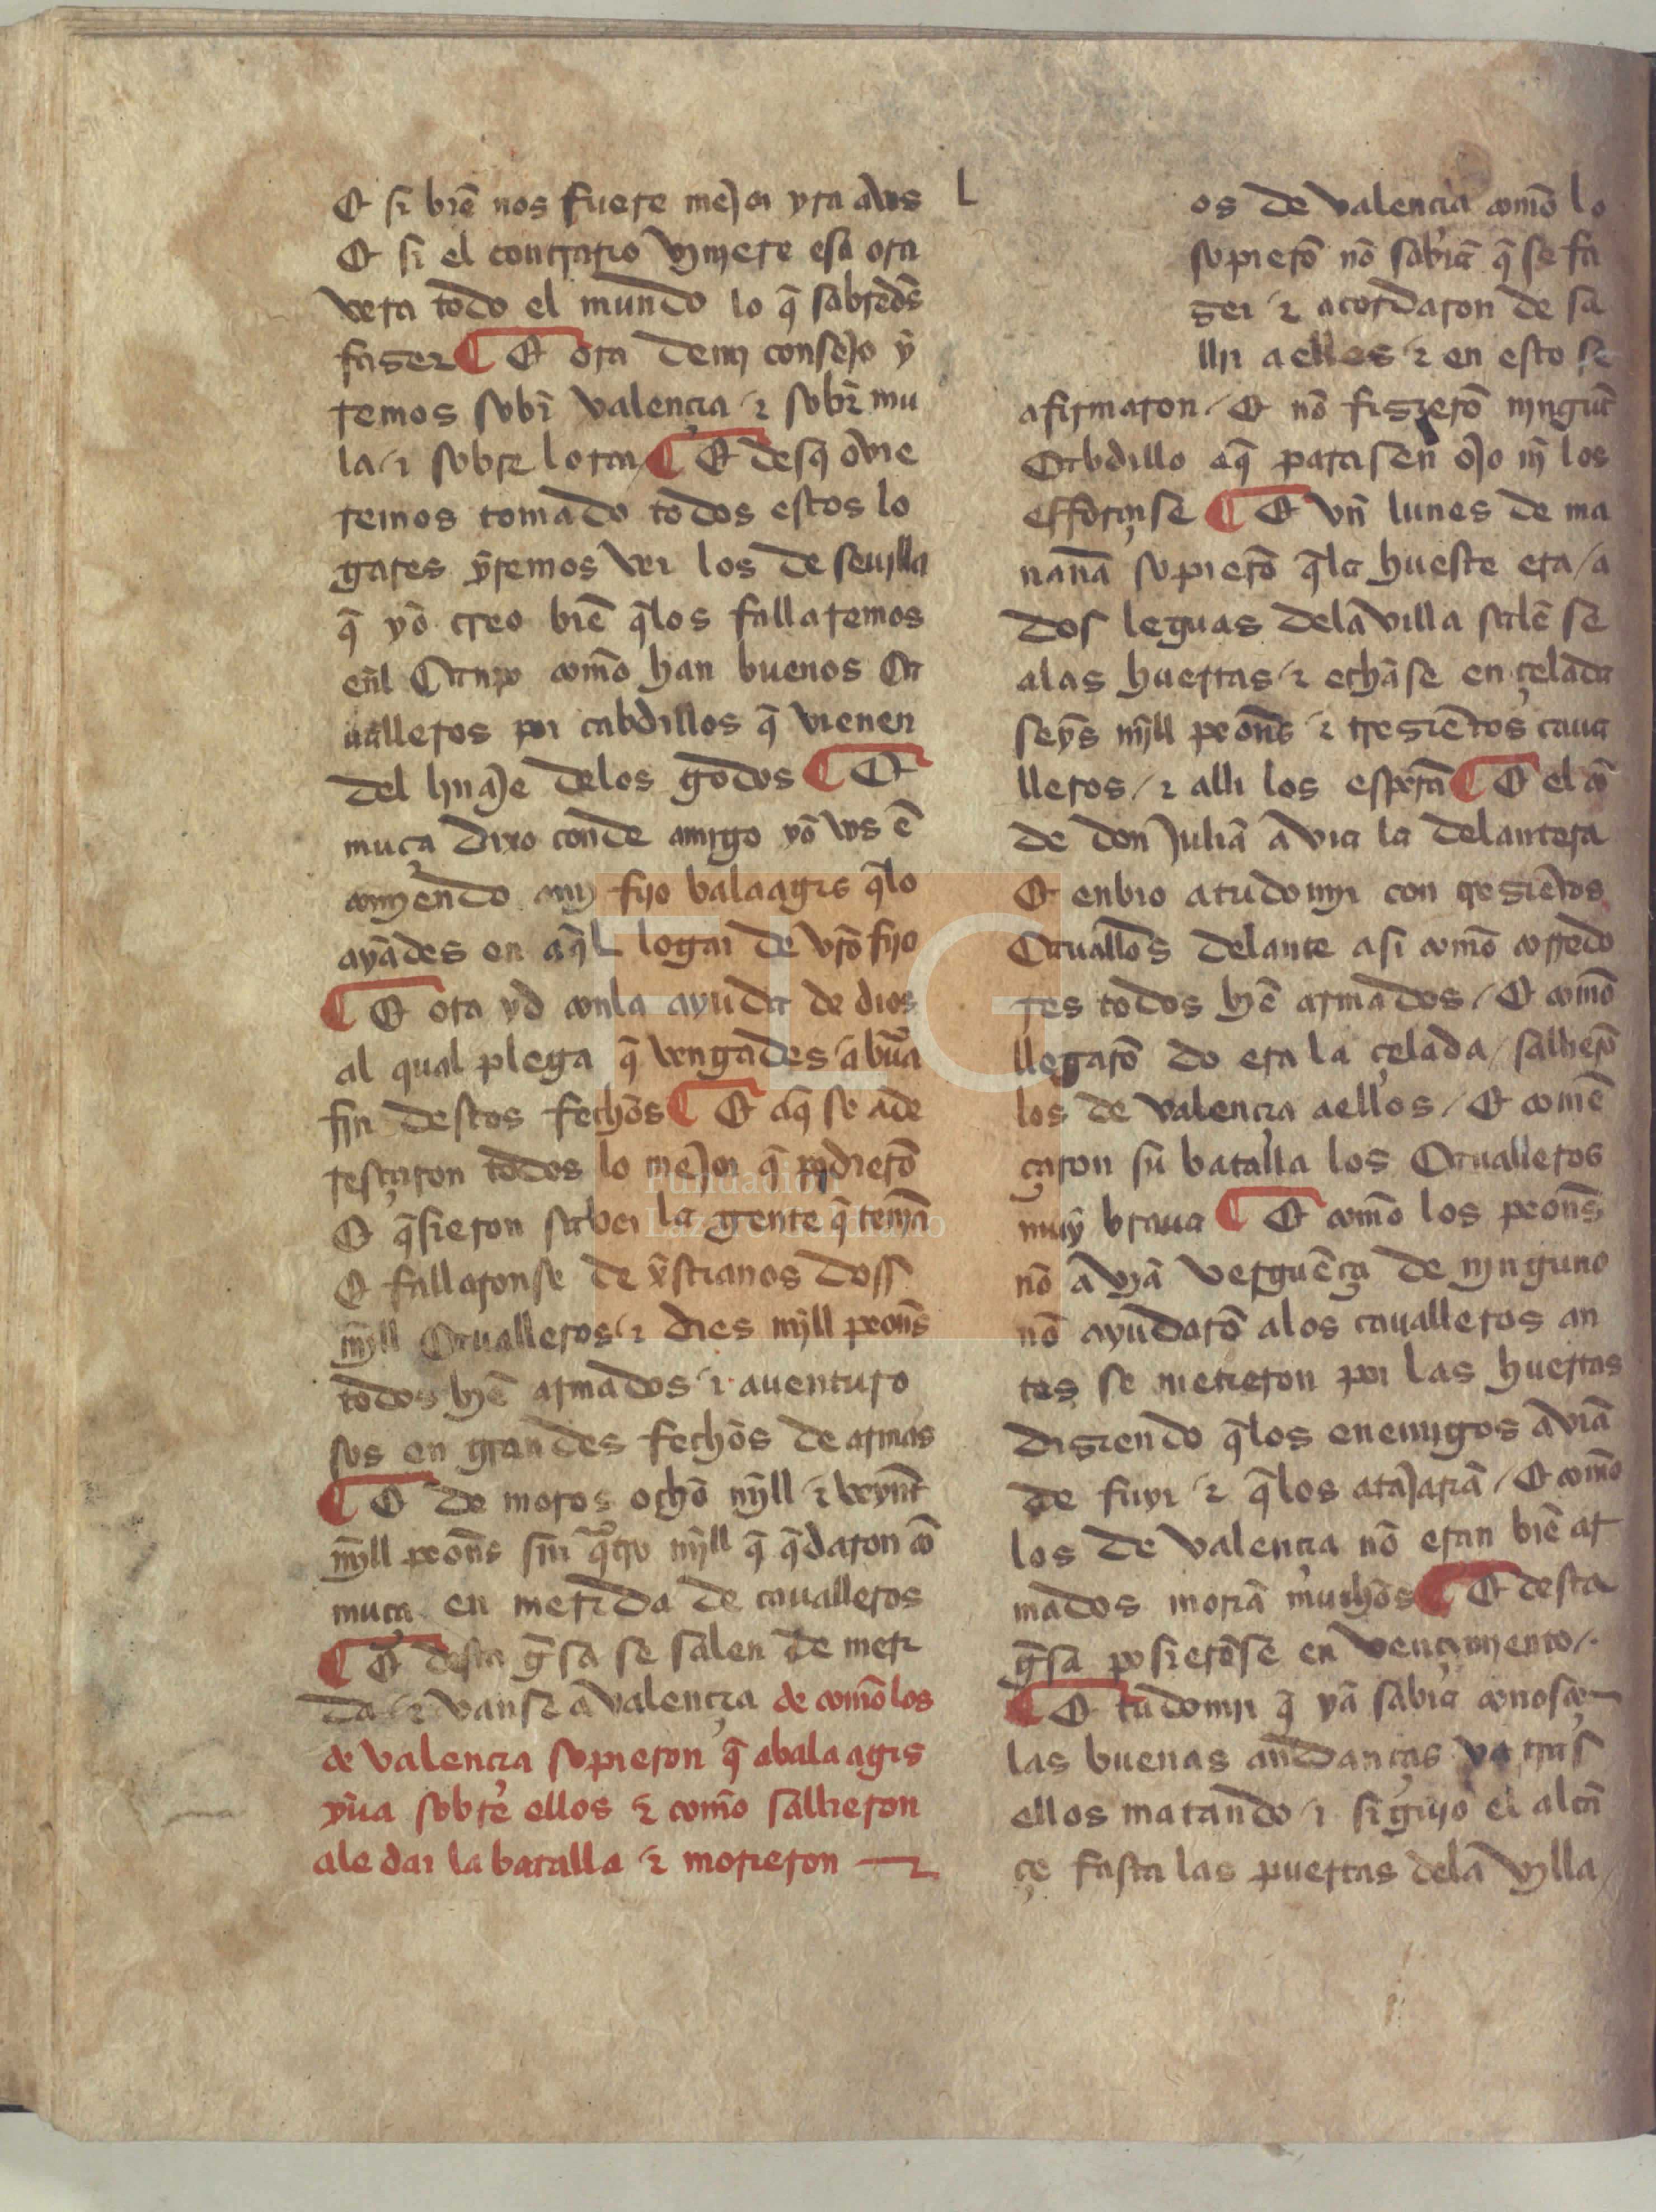 Et si biẽ nos fuere mejor yra a vos
Et si el contrario vjnjere esa ora
vera todo el mundo lo q̃ sabredẽs
faser ¶ Et ora demj consejo ỹ
remos sobr̃ valençia / ⁊ sobr̃ mu
la / ⁊ sobre lorca / ¶ Et desq̃ ovie
remos tomado todos estos lo
gares ỹremos ver los de seujlla
q̃ yo creo biẽ q̃los fallaremos
eñl Canpo com̃o han buenos Ca
ualleros por cabdillos q̃ vienen
del linaje delos godos ¶ Et
muça dixo conde amigo yo vos ẽ
comjendo amj fijo balaagis q̃lo
ayades en aq̃L logar de vr̃o fijo
¶ Et ora yd conla ayuda de dios
al qual plega q̃ vengades / a bũa
fin destos fechos ¶ Et aq̃ se ade
resçaron todos lo mejor q̃ podierõ
Et q̃sieron saber la gente q̃ tenjã
Et fallaronse de xr̃stianos doss
mjll Caualleros / ⁊ dies mjll peoñs
todos bjẽ armados / ⁊ auenturo
sos en grandes fechos de armas
¶ Et de moros ocho mjll / ⁊ veynt̃
mjll peoñs sin q̃tro mjll q̃ q̃daron cõ
muça en merida de caualleros
¶ Et desta g̃sa se salen de meri
da / ⁊ vanse a valençia de com̃o los
de valencia sopieron q̃ abalaagis
yua sobre ellos ⁊ com̃o sallieron
ale dar la batalla ⁊ morieron
L os de valencia com̃o lo
sopierõ nõ sabiã q̃ se fa
ser / ⁊ acordaron de sa
llir a ellos / ⁊ en esto se
afirmaron / Et nõ fisierõ njngũt
Cabdillo aq̃ parasen ojo nj̃ los
efforçase ¶ Et vñ lunes de ma
nanã sopierõ q̃la hueste era / a
dos leguas dela villa salẽ se
alas huertas / ⁊ echãse en çelada
seys mjll peoñs ⁊ tresiẽtos caua
lleros / ⁊ alli los esperã ¶ Et el cõ
de don juliã avia la delantera
Et enbio atudomjr con tresiẽtos
Cauallos delante asi com̃o corredo
res todos bjẽ armados / Et com̃o
llegarõ do era la çelada / sallierõ
los de valencia aellos / Et comẽ
çaron su batalla los Caualleros
muỹ braua ¶ Et com̃o los peoñs
nõ avjã verguẽça de njnguno
nõ ayudarõ alos caualleros an
tes se metieron por las huertas
disiendo q̃los enemjgos aviã
de fuyr ⁊ q̃los atajariã / Et com̃o
los de valencia nõ eran biẽ ar
mados moriã muchos ¶ Et desta
g̃sa posierõse en vencimjento /.
¶ Et tudomjr q̃ yã sabia conosçer
las buenas andanças va tras
ellos matando / ⁊ siguyo el alcã
çe fasta las puertas dela vjlla